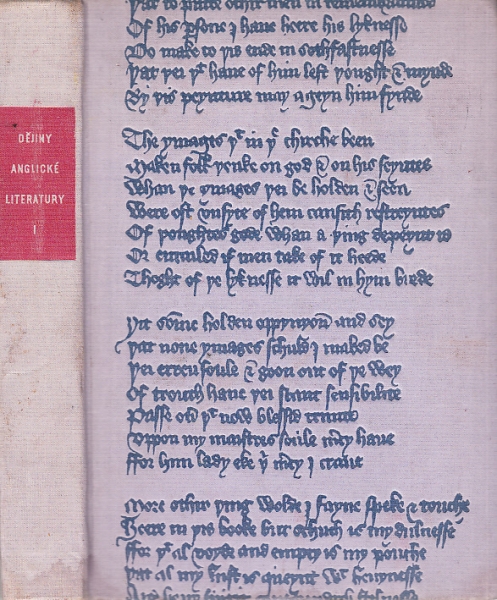 DĚJINY
ANGLICKÉ
LITERATURY
I
þat to putte othir men in remembraunce
Of his psone I haue heere his lyknesse
Do make to þis ende in sothfastnesse
þat þei þt haue of him left þought & mynde
By þis peynture may ageyn him fynde
The ymages þt in þe chirche been
Maken folk þenke on god & on his seyntes
Whan þe ymages þei be holden & seen
Were oft vnsyte of hem causith restreyntes
Of þoughtes gode whan a þing depeynt is
Or entailed if men take of it heede
Thoght of þe lyknesse it wil in hym brede
Yit some holden oppynyon and sey
þat none ymages schuld I maked be
þei erren foule & goon out of þe wey
Of trouth haue þei scant sensibilite
Passe ou þt now blessid trinite
Vppon my maistres soule mcy haue
ffor him lady eke þi mcy I craue
More othir þing wolde I fayne speke & touche
Heere in þis booke but schuch is my dulnesse
ffor þt al voyde and empty is my pouche
þat al my lust is queynt wt heuynesse